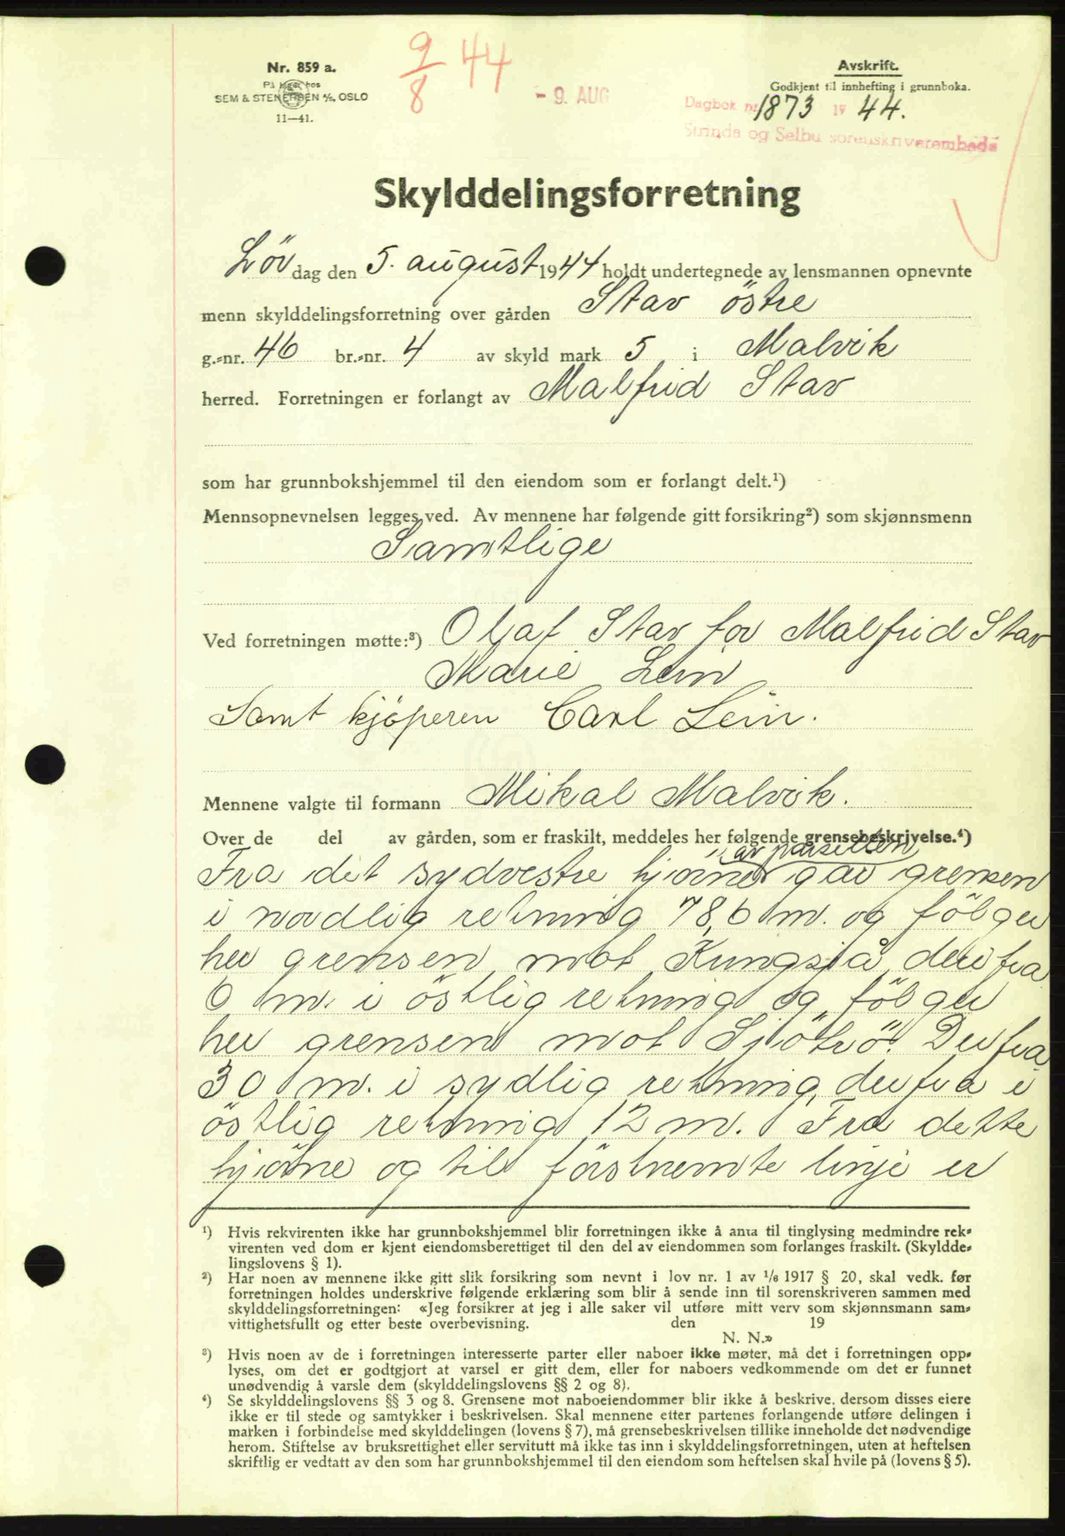 Nr. 859 a.
På lager hos
SEM & STENERSEN A/S, OSLO
11—41.
9/8 44
- 9. AUG
Avskrift.
Godkjent til innhefting i grunnboka.
Dagbok nr. 1873 19 44.
Strinda og Selbu sorenskriverembede
Skylddelingsforretning
Lör dag den 5. august 1944 holdt undertegnede av lensmannen opnevnte
menn skylddelingsforretning over gården Stav östre
g.-nr. 46 br.-nr. 4 av skyld mark 5 i Malvik
herred. Forretningen er forlangt av Malfrid Stav
som har grunnbokshjemmel til den eiendom som er forlangt delt.¹)
Mennsopnevnelsen legges ved. Av mennene har følgende gitt forsikring²) som skjønnsmenn
Samtlige
Ved forretningen møtte:³) Olaf Stav for Malfrid Stav
Marie Lein
Samt kjöperen Carl Lein.
Mennene valgte til formann Mikal Malvik.
Over de del av gården, som er fraskilt, meddeles her følgende grensebeskrivelse.⁴)
av parsellen
Fra det sydvestre hjörne går grensen
i nordlig retning 78,6 m. og fölger
her grensen mot Kungsjå, derifra
6 m. i östlig retning og fölger
her grensen mot "Sjötrö". Derfra
30 m. i sydlig retning, derfra i
östlig retning 12 m. Fra dette
hjörne og til förstnemte linje er
¹) Hvis rekvirenten ikke har grunnbokshjemmel blir forretningen ikke å anta til tinglysing medmindre rek-
virenten ved dom er kjent eiendomsberettiget til den del av eiendommen som forlanges fraskilt. (Skyldde-
lingslovens § 1).
²) Har noen av mennene ikke gitt slik forsikring som nevnt i lov nr. 1 av 1/6 1917 § 20, skal vedk. før
forretningen holdes underskrive følgende erklæring som blir å sende inn til sorenskriveren sammen med
skylddelingsforretningen: «Jeg forsikrer at jeg i alle saker vil utføre mitt verv som skjønnsmann sam-
vittighetsfullt og etter beste overbevisning. den 19
N. N.»
³) Hvis noen av de i forretningen interesserte parter eller naboer ikke møter, må det i forretningen opp-
lyses, om det er godtgjort at varsel er gitt dem, eller for naboers vedkommende om det er funnet
unødvendig å varsle dem (skylddelingslovens §§ 2 og 8).
⁴) Se skylddelingslovens §§ 3 og 8. Grensene mot naboeiendommer blir ikke å beskrive, dersom disses eiere
ikke er til stede og samtykker i beskrivelsen. Skal mennene etter partenes forlangende utføre delingen i
marken i forbindelse med skylddelingen (lovens § 7), må grensebeskrivelsen tillike inneholde det nødvendige
herom. Stiftelse av bruksrettighet eller servitutt må ikke tas inn i skylddelingsforretningen, uten at heftelsen
skriftlig er vedtatt av den som har grunnbokshjemmel til den eiendom som heftelsen skal hvile på (lovens § 5).